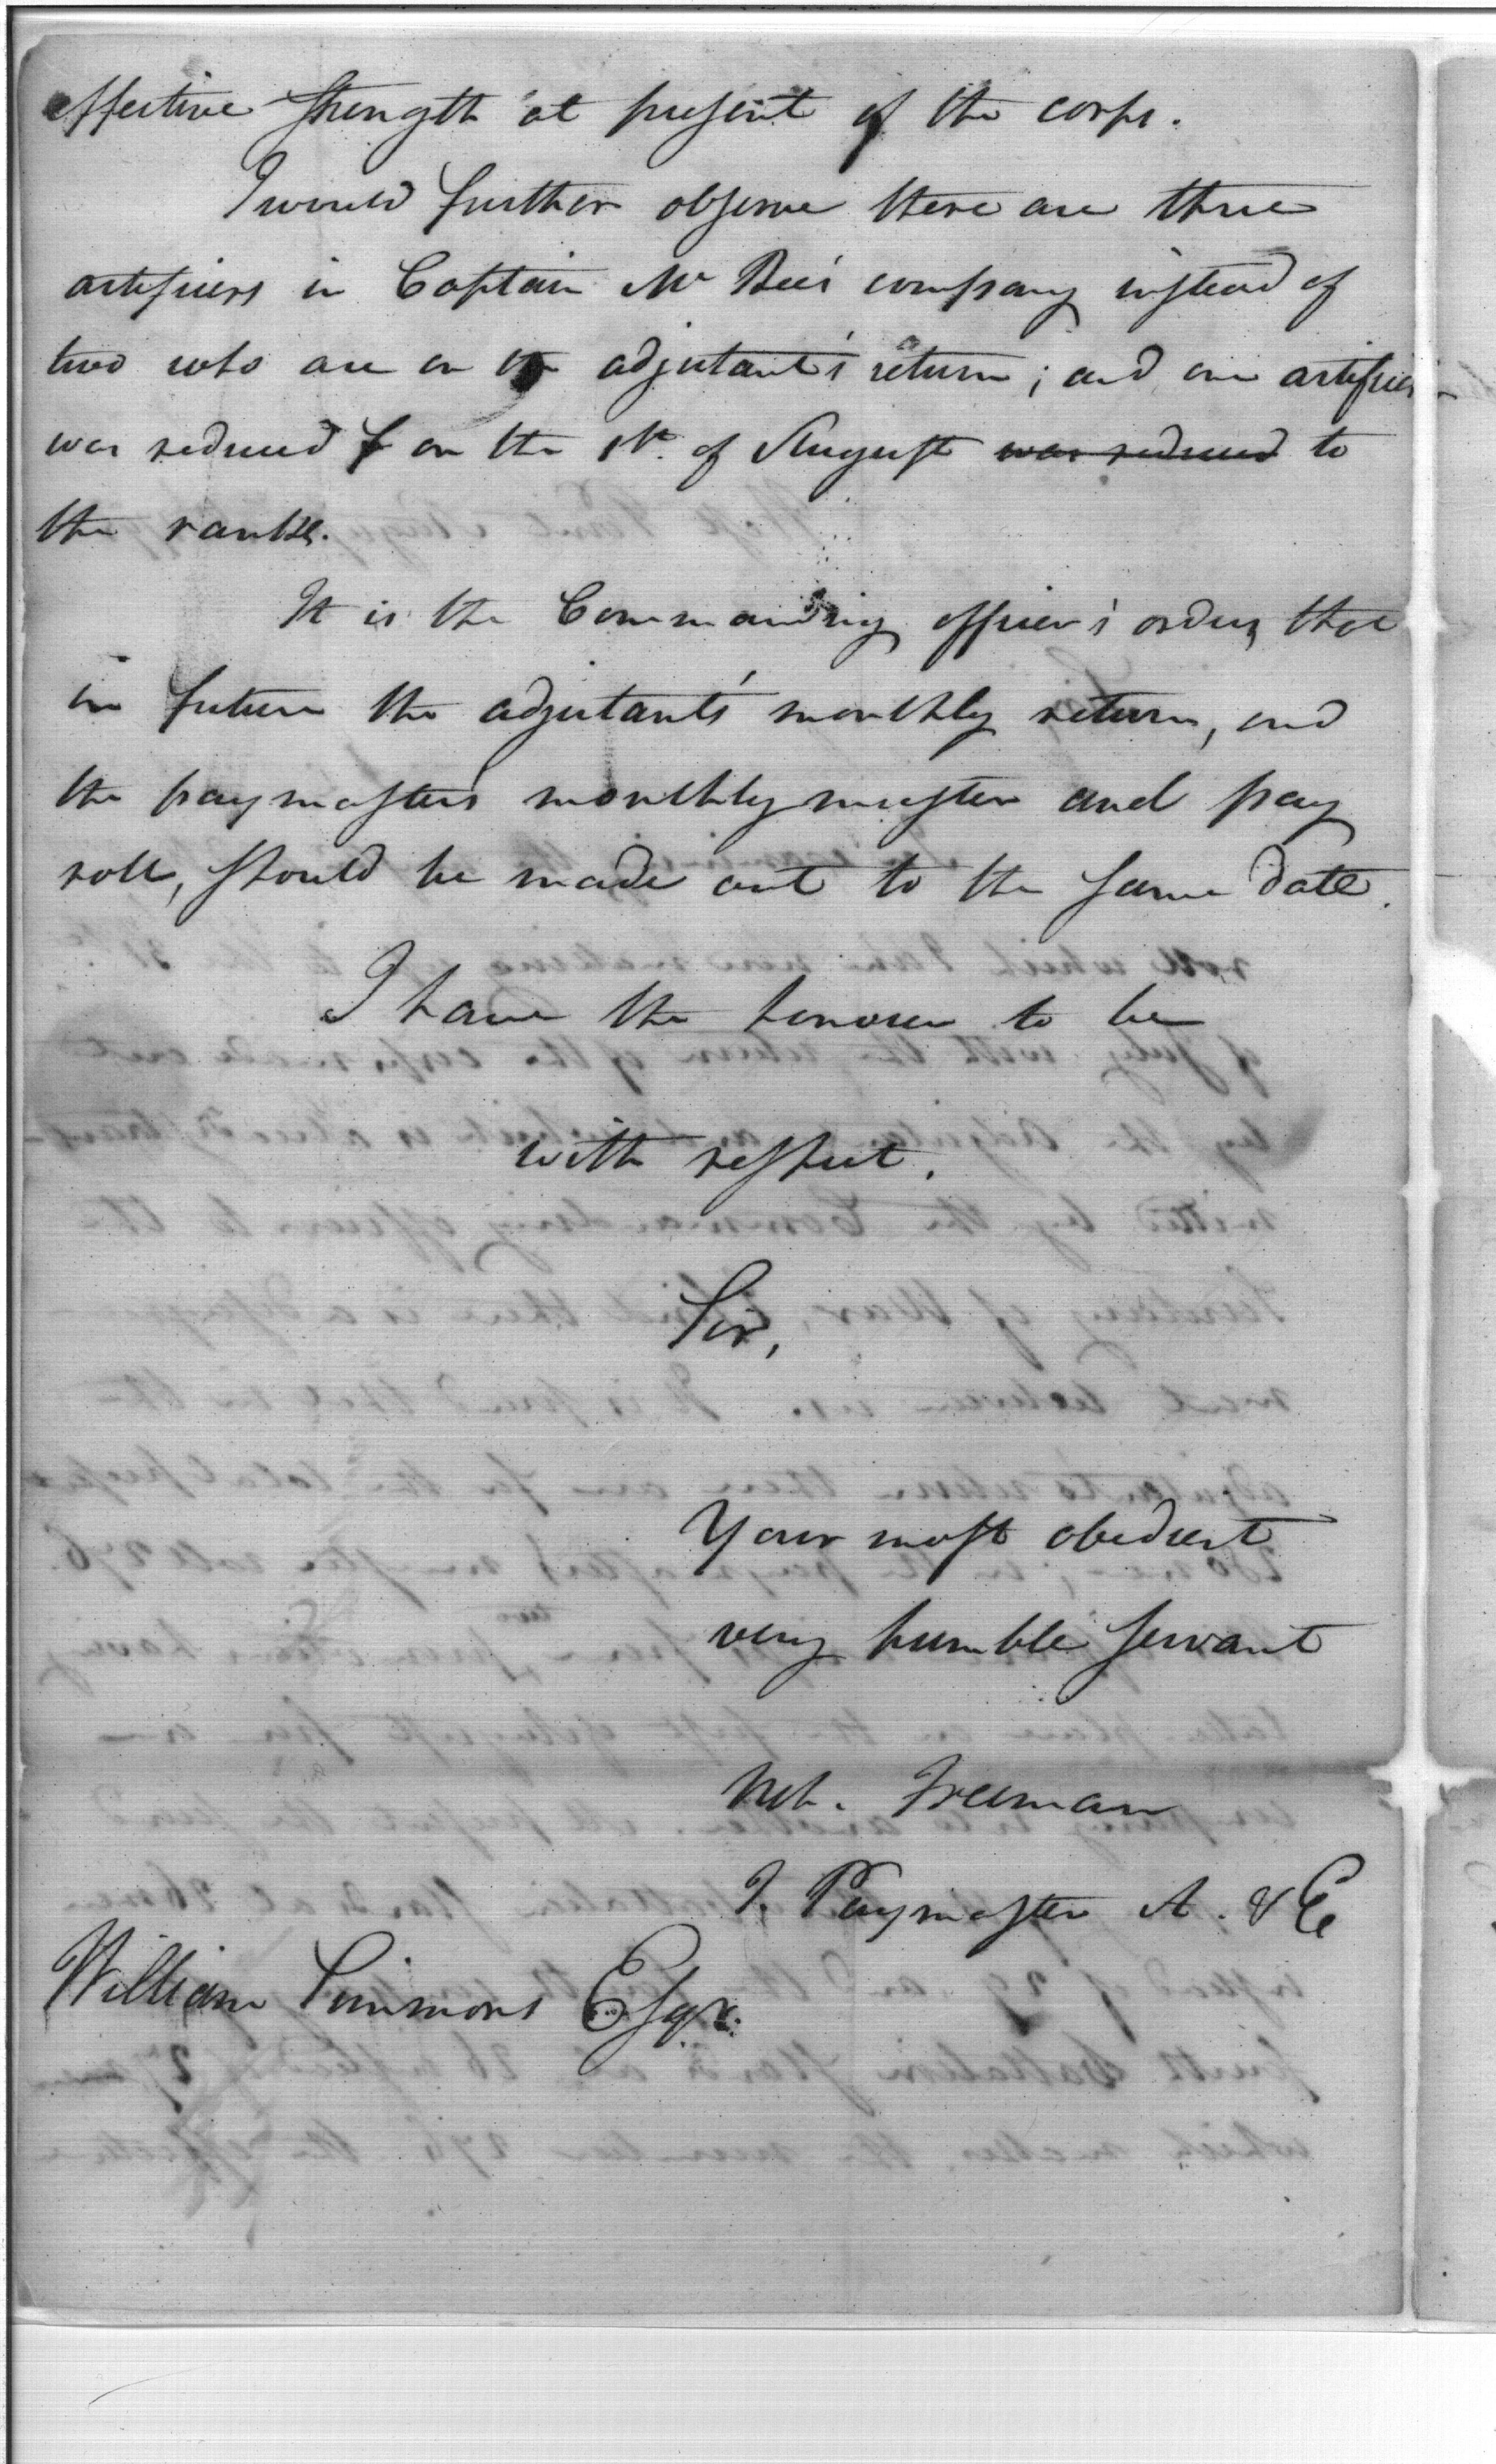 effective strength at present of the corps.
I would further observe there are three
artificers in Captain Mc Rea's company instead of
two who are on the adjutant's return; and one artificer
was reduced on the 1st. of August was reduced to
the ranks.
It is the Commanding officer's orders, that
in future the adjutant's monthly return, and
the paymasters monthly muster and pay
roll, should be made out to the same date.
I have the honour to be
with respect,
Sir,
Your most obedient
very humble servant
Neh. Freeman
Paymaster A. & E
William Simmons Esqr.